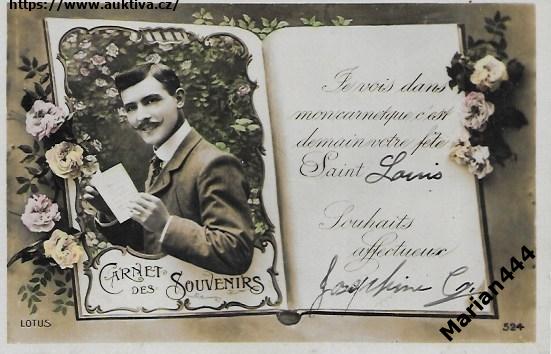 https://www.auktiva.cz/
Je vois dans
mon carnet que c'est
demain votre fête
Saint Louis
Souhaits
affectueux
Josephine G.
CARNET
DES SOUVENIRS
LOTUS
524
Marian444